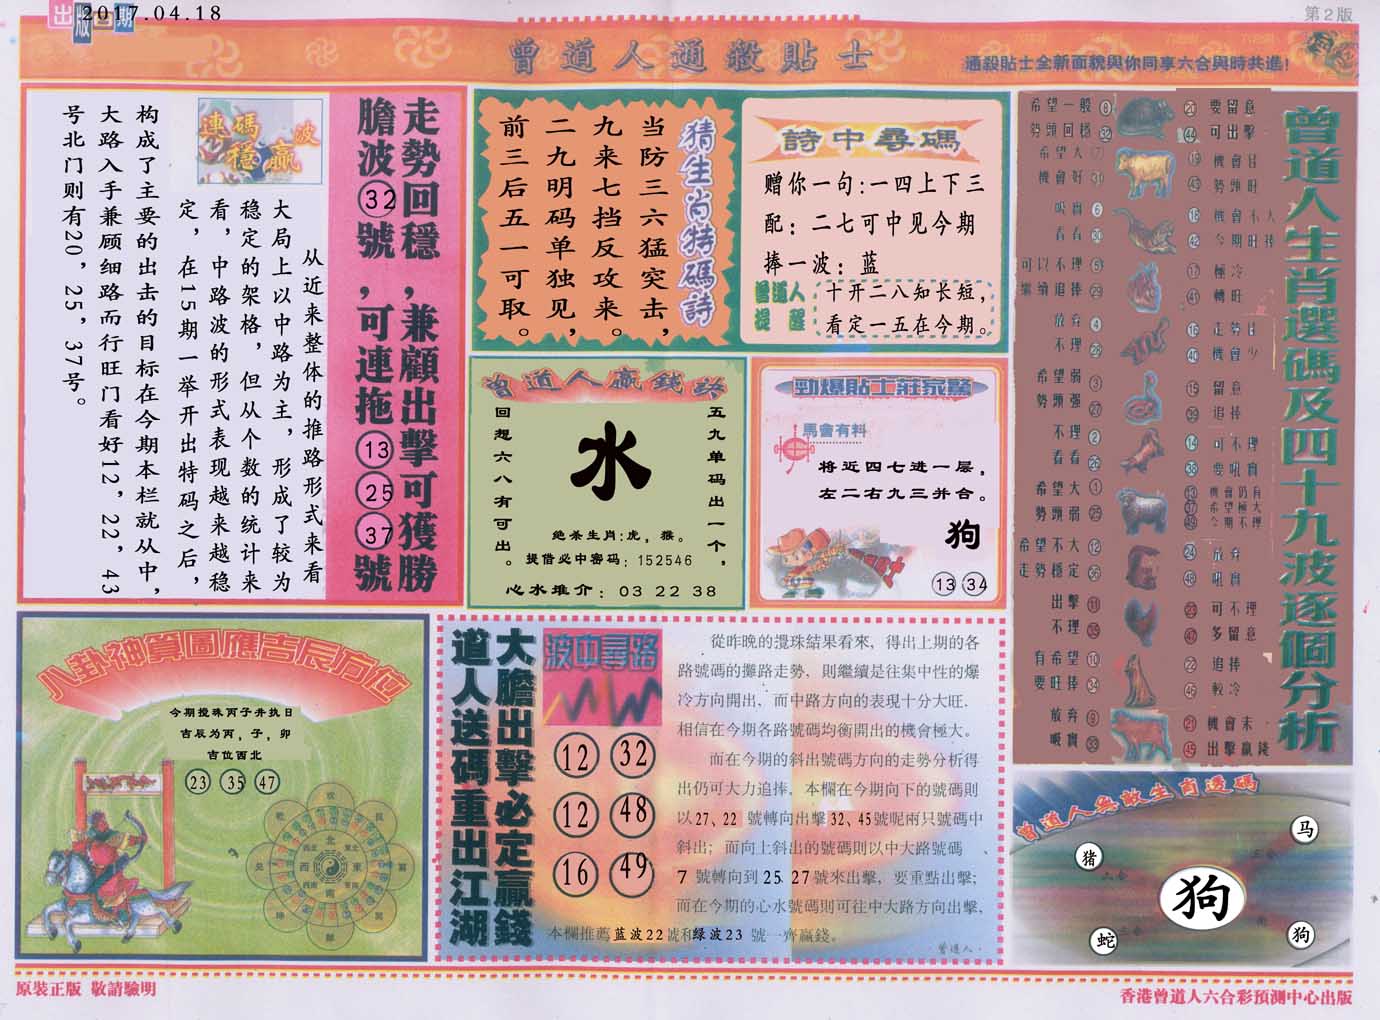 出版日期
2017.04.18
第2版
曾道人通殺貼士
通殺貼士全新面貌與你同享六合與時共進!
走勢回穩,兼顧出擊可獲勝
膽波32號,可連拖13 25 37號
連碼波
穩贏
从近来整体的推路形式来看
大局上以中路为主,形成了较为
稳定的架格,但从个数的统计来
看,中路波的形式表现越来越稳
定,在15期一举开出特码之后,
构成了主要的出击的目标在今期本栏就从中,
大路入手兼顾细路而行旺门看好12,22,43
号北门则有20,25,37号。
猜生肖特碼詩
当防三六猛突击,
九来七挡反攻来。
二九明码单独见,
前三后五一可取。
詩中尋碼
赠你一句:一四上下三
配:二七可中见今期
捧一波:蓝
曾道人
提醒
十开二八知长短,
看定一五在今期。
曾道人贏錢詩
五九单码出一个,
回想六八有可出。
水
绝杀生肖:虎,猴。
提借必中密码:152546
心水推介:03 22 38
勁爆貼士莊家驚
馬會有料
将近四七进一层,
左二右九三并合。
狗
13 34
曾道人生肖選碼及四十九波逐個分析
希望一般 8 20 要留意
勢頭回穩 32 44 可出擊
希望大 7 19 機會佳
機會好 31 43 勢頭旺
吸實 6 18 機會不大
看看 30 42 今期旺捧
可以不理 5 17 極冷
繼續追捧 29 41 轉旺
放弃 4 16 走勢佳
不理 28 40 機會少
希望弱 3 15 留意
勢頭强 27 39 追捧
不理 2 14 可不理
看看 26 38 要吼實
希望大 1 13 機會仍有
37 希望極大
勢頭弱 25 49 今期不理
希望不大 12 24 放弃
走勢穩定 36 48 吼實
出擊 11 23 可不理
不理 35 47 多留意
有希望 10 22 追捧
要旺捧 34 46 較冷
放弃 9 21 機會未
吸實 33 45 出擊贏錢
八卦神算圖應吉辰方位
今期搅珠丙子井执日
吉辰为丙,子,卯
吉位西北
23 35 47
北
西 東
南
大膽出擊必定贏錢
道人送碼重出江湖
波中尋路
12 32
12 48
16 49
從昨晚的攪珠結果看來,得出上期的各
路號碼的攤路走勢,則繼續是往集中性的爆
冷方向開出,而中路方向的表現十分大旺.
相信在今期各路號碼均衡開出的機會極大。
而在今期的斜出號碼方向的走勢分析得
出仍可大力追捧,本欄在今期向下的號碼則
以27、22 號轉向出擊32、45號呢兩只號碼中
斜出;而向上斜出的號碼則以中大路號碼、
7 號轉向到25 27號來出擊,要重點出擊;
而在今期的心水號碼則可往中大路方向出擊,
本欄推薦蓝波22號和绿波23 號一齊贏錢。
曾道人.
曾道人無敵生肖透碼
马
猪
狗
蛇
狗
原裝正版 敬請驗明
香港曾道人六合彩預測中心出版